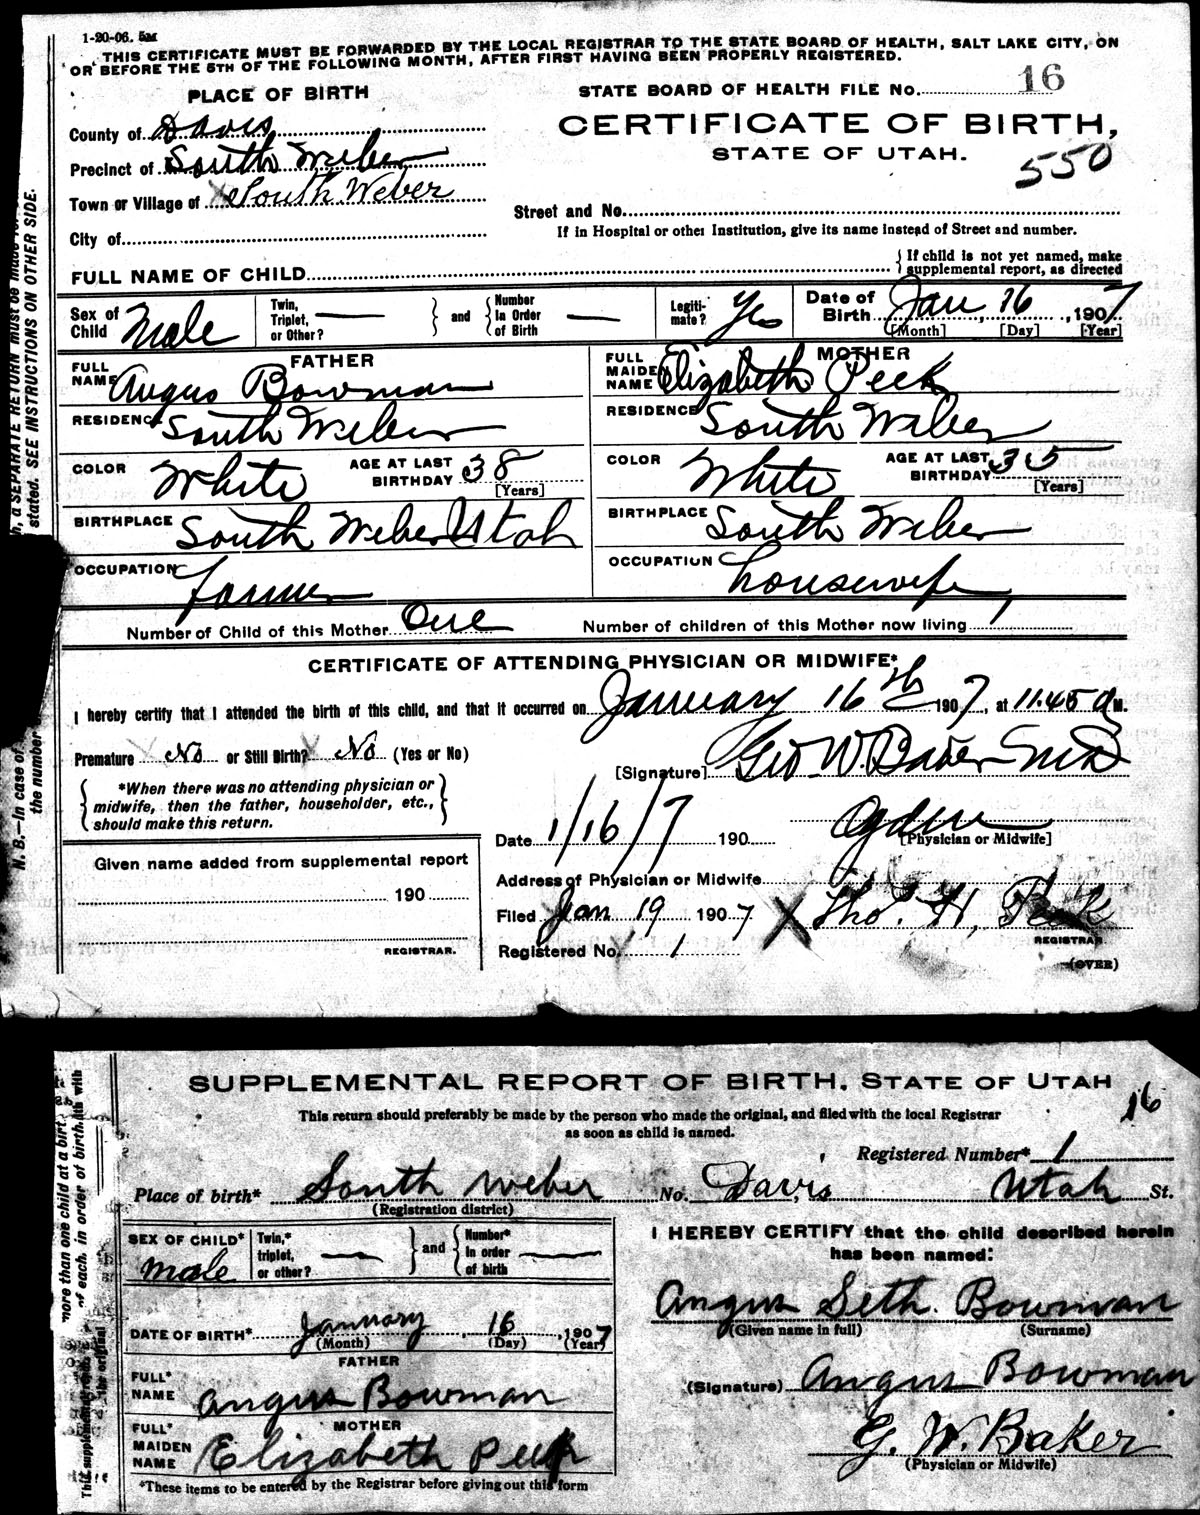 1-20-06. 5M
THIS CERTIFICATE MUST BE FORWARDED BY THE LOCAL REGISTRAR TO THE STATE BOARD OF HEALTH, SALT LAKE CITY, ON
OR BEFORE THE 5TH OF THE FOLLOWING MONTH, AFTER FIRST HAVING BEEN PROPERLY REGISTERED.
PLACE OF BIRTH
STATE BOARD OF HEALTH FILE No. 16
County of Davis
CERTIFICATE OF BIRTH,
Precinct of South Weber
STATE OF UTAH.
550
Town or Village of South Weber
Street and No.
City of
If in Hospital or other Institution, give its name instead of Street and number.
FULL NAME OF CHILD
If child is not yet named, make
supplemental report, as directed
Sex of Child Male
Twin, Triplet, or Other? —
and
Number In Order of Birth —
Legiti-mate? Yes
Date of Birth Jan, 16, 1907
[Month] [Day] [Year]
FATHER
FULL NAME Angus Bowman
RESIDENCE South Weber
COLOR White
AGE AT LAST BIRTHDAY 38 [Years]
BIRTHPLACE South Weber Utah
OCCUPATION Farmer
MOTHER
FULL MAIDEN NAME Elizabeth Peek
RESIDENCE South Weber
COLOR White
AGE AT LAST BIRTHDAY 35 [Years]
BIRTHPLACE South Weber
OCCUPATION housewife
Number of Child of this Mother One
Number of children of this Mother now living 1
CERTIFICATE OF ATTENDING PHYSICIAN OR MIDWIFE*
I hereby certify that I attended the birth of this child, and that it occurred on January 16th 1907, at 11.45 a M.
Premature No or Still Birth? No (Yes or No)
[Signature] Geo. W. Baker MD
*When there was no attending physician or
midwife, then the father, householder, etc.,
should make this return.
Date 1/16/7 190
Ogden
[Physician or Midwife]
Given name added from supplemental report
190
REGISTRAR.
Address of Physician or Midwife
Filed Jan 19, 1907
X Tho. H. Peek
REGISTRAR.
Registered No. 1
(OVER)
a SEPARATE RETURN must be made
stated. SEE INSTRUCTIONS ON OTHER SIDE.
N. B.—In case of
the number
SUPPLEMENTAL REPORT OF BIRTH. STATE OF UTAH
16
This return should preferably be made by the person who made the original, and filed with the local Registrar
as soon as child is named.
Registered Number* 1
Place of birth* South Weber No. Davis Utah St.
(Registration district)
SEX OF CHILD* male
Twin,* triplet, or other? —
and
Number* in order of birth —
I HEREBY CERTIFY that the child described herein
has been named:
Angus Seth Bowman
(Given name in full) (Surname)
DATE OF BIRTH* January, 16, 1907
(Month) (Day) (Year)
FATHER
FULL* NAME Angus Bowman
(Signature) Angus Bowman
MOTHER
FULL* MAIDEN NAME Elizabeth Peek
G. W. Baker
(Physician or Midwife)
*These items to be entered by the Registrar before giving out this form
more than one child at a birt
of each, in order of birth
This supplemental
the original